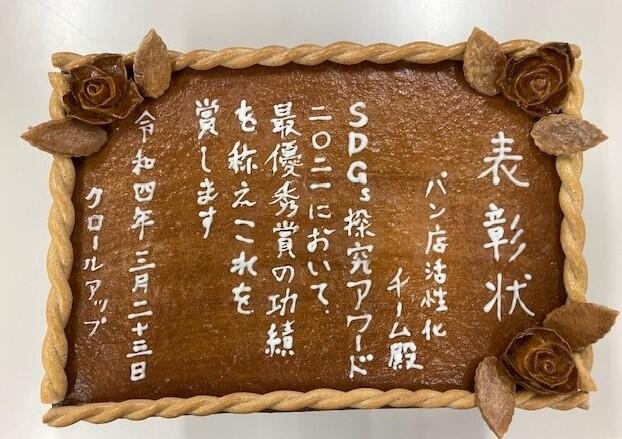 表彰状
パン店活性化
チーム殿
SDGs探究アワード
二〇二一において、
最優秀賞の功績
を称えこれを
賞します
令和四年三月二十三日
クロールアップ